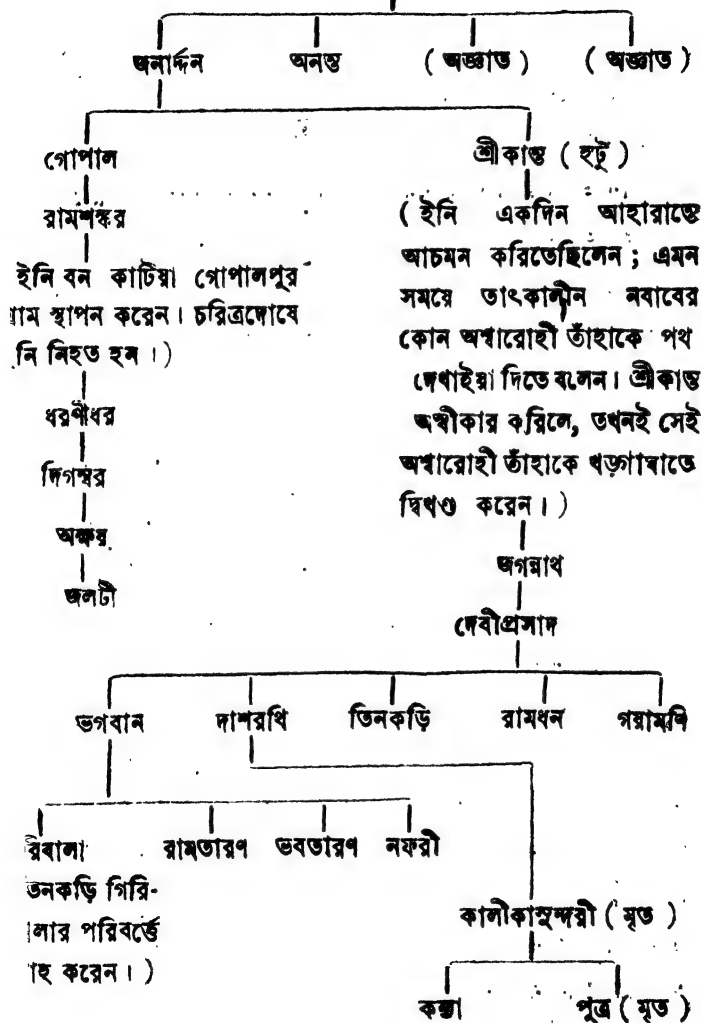 জনার্দ্দন অনন্ত ( অজ্ঞাত ) ( অজ্ঞাত )
গোপাল শ্রীকান্ত ( হটু )
রামশঙ্কর
ইনি বন কাটিয়া গোপালপুর
গ্রাম স্থাপন করেন। চরিত্রদোষে
নি নিহত হন।)
ধরণীধর
দিগম্বর
অক্ষয়
জলটী
( ইনি একদিন আহারান্তে
আচমন করিতেছিলেন ; এমন
সময়ে তাৎকালীন নবাবের
কোন অশ্বারোহী তাঁহাকে পথ
দেখাইয়া দিতে বলেন। শ্রীকান্ত
অস্বীকার করিলে, তখনই সেই
অশ্বারোহী তাঁহাকে খড়্গাঘাতে
দ্বিখণ্ড করেন।)
জগন্নাথ
দেবীপ্রসাদ
ভগবান দাশরথি তিনকড়ি রামধন গয়ামণি
রিবালা রামতারণ ভবতারণ নফরী
তনকড়ি গিরি-
লার পরিবর্ত্তে
াহ করেন।)
কালীকাসুন্দরী ( মৃত )
কন্যা পুত্র ( মৃত )